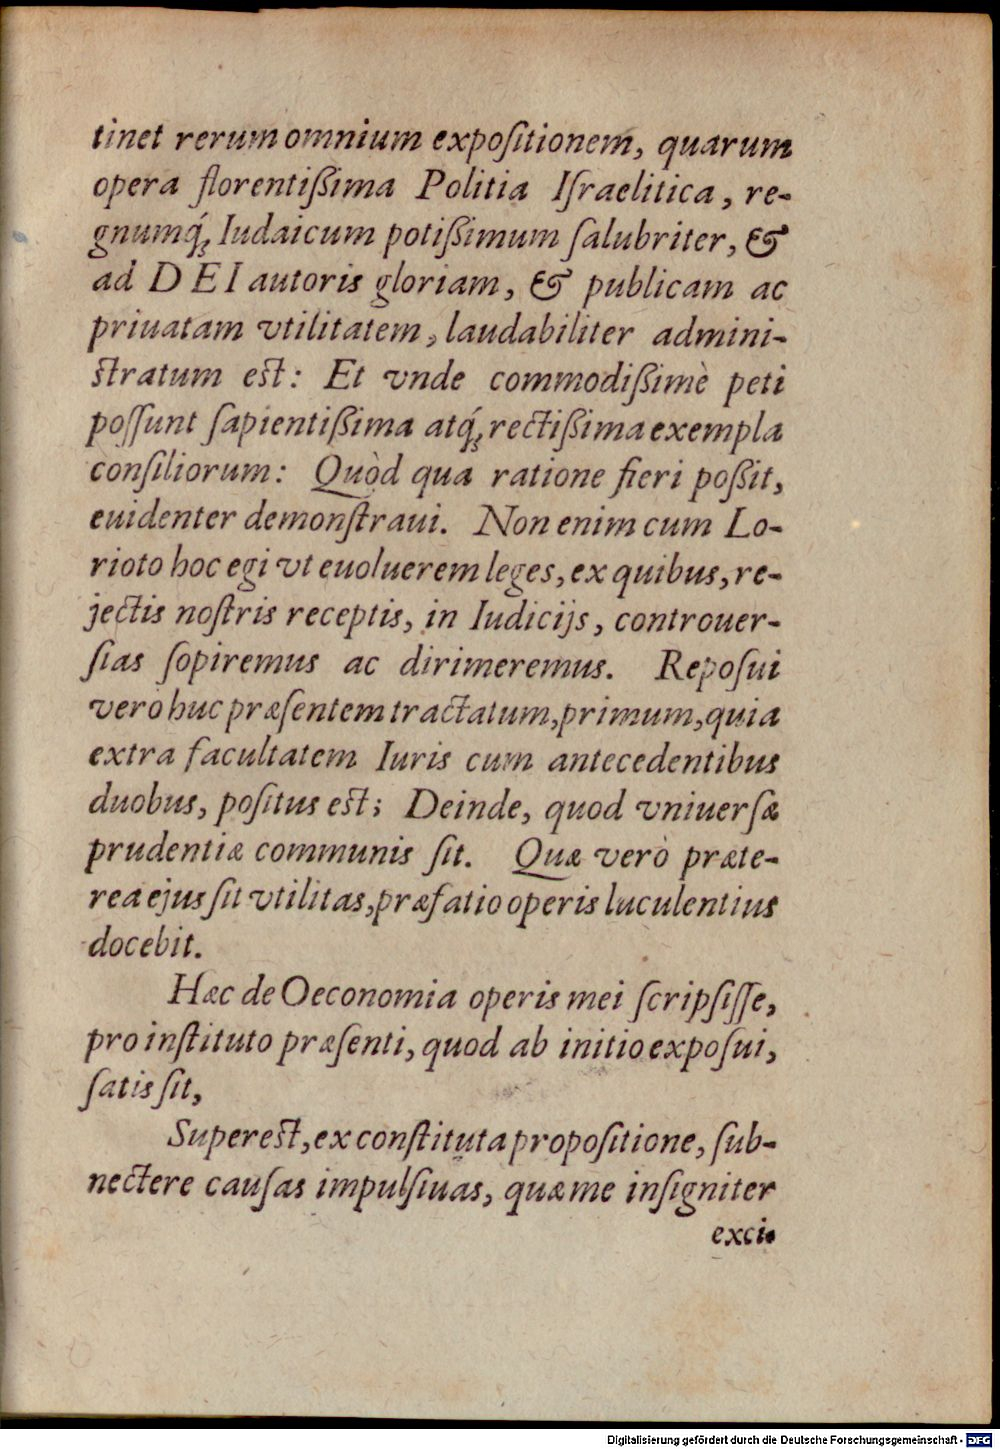 tinet rerum omnium expoſitionem, quarum
opera florentißima Politia Iſraelitica, re-
gnumq́; Iudaicum potißimum ſalubriter, &
ad DEI autoris gloriam, & publicam ac
priuatam vtilitatem, laudabiliter admini-
ſtratum eſt: Et vnde commodißimè peti
poſſunt ſapientißima atq́; rectißima exempla
conſiliorum: Quòd qua ratione fieri poßit,
euidenter demonſtraui. Non enim cum Lo-
rioto hoc egi vt euoluerem leges, ex quibus, re-
jectis noſtris receptis, in Iudicijs, controuer-
ſias ſopiremus ac dirimeremus. Repoſui
verò huc præſentem tractatum, primum, quia
extra facultatem Iuris cum antecedentibus
duobus, poſitus eſt; Deinde, quod vniuerſæ
prudentiæ communis ſit. Quæ verò præte-
rea ejus ſit vtilitas, præfatio operis luculentius
docebit.
Hæc de Oeconomia operis mei ſcripſiſſe,
pro inſtituto præſenti, quod ab initio expoſui,
ſatis ſit,
Supereſt, ex conſtituta propoſitione, ſub-
nectere cauſas impulſiuas, quæ me inſigniter
exci-
Digitalisierung gefördert durch die Deutsche Forschungsgemeinschaft - DFG